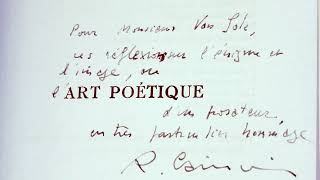 Pour Monsieur Von Sole,
ces réflexions sur l'énigme et
l'image, ou
l'ART POÉTIQUE
d'un prosateur,
en très particulier hommage
R. Caillois